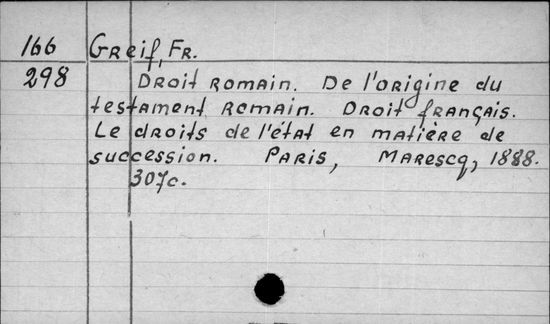 166 Greif, Fr.
298 Droit romain. De l'origine du
testament romain. Droit français.
Le droits de l'état en matière de
succession. Paris, Marescq, 1888.
307c.